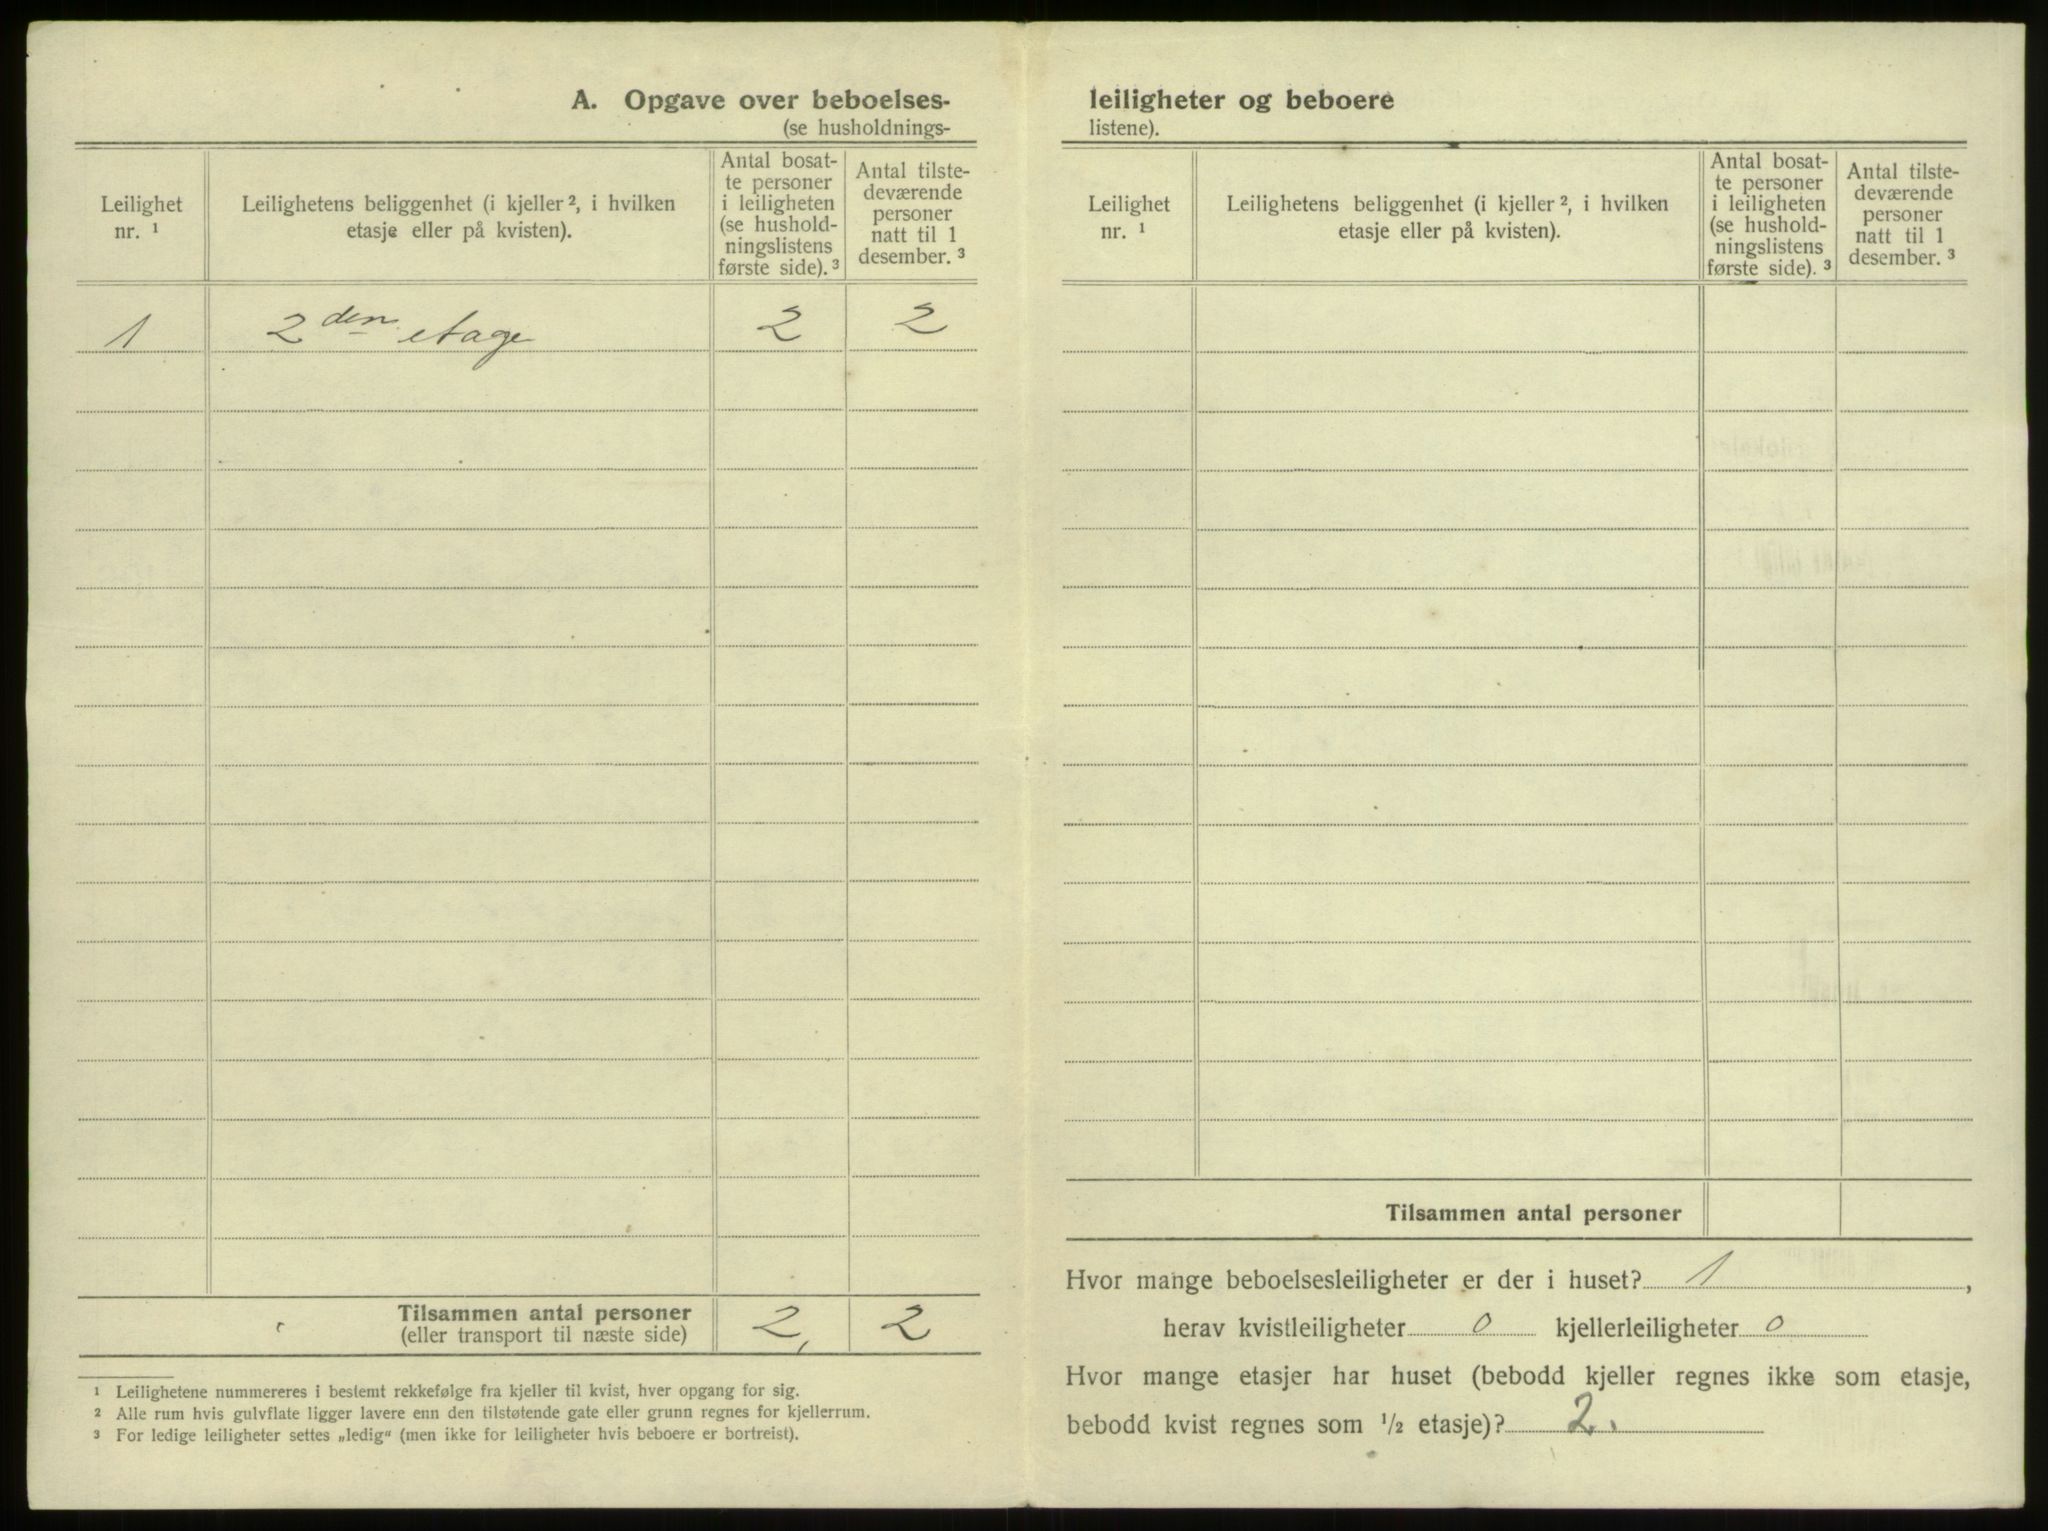 A. Opgave over beboelses-
(se husholdnings-
Leilighet
nr. ¹
Leilighetens beliggenhet (i kjeller ², i hvilken
etasje eller på kvisten).
Antal bosat-
te personer
i leiligheten
(se hushold-
ningslistens
første side). ³
Antal tilste-
deværende
personer
natt til 1
desember. ³
1 2den etage 2 2
Tilsammen antal personer 2, 2
(eller transport til næste side)
¹ Leilighetene nummereres i bestemt rekkefølge fra kjeller til kvist, hver opgang for sig.
² Alle rum hvis gulvflate ligger lavere enn den tilstøtende gate eller grunn regnes for kjellerrum.
³ For ledige leiligheter settes „ledig“ (men ikke for leiligheter hvis beboere er bortreist).
leiligheter og beboere
listene).
Leilighet
nr. ¹
Leilighetens beliggenhet (i kjeller ², i hvilken
etasje eller på kvisten).
Antal bosat-
te personer
i leiligheten
(se hushold-
ningslistens
første side). ³
Antal tilste-
deværende
personer
natt til 1
desember. ³
Tilsammen antal personer
Hvor mange beboelsesleiligheter er der i huset? 1,
herav kvistleiligheter 0 kjellerleiligheter 0
Hvor mange etasjer har huset (bebodd kjeller regnes ikke som etasje,
bebodd kvist regnes som ½ etasje)? 2.